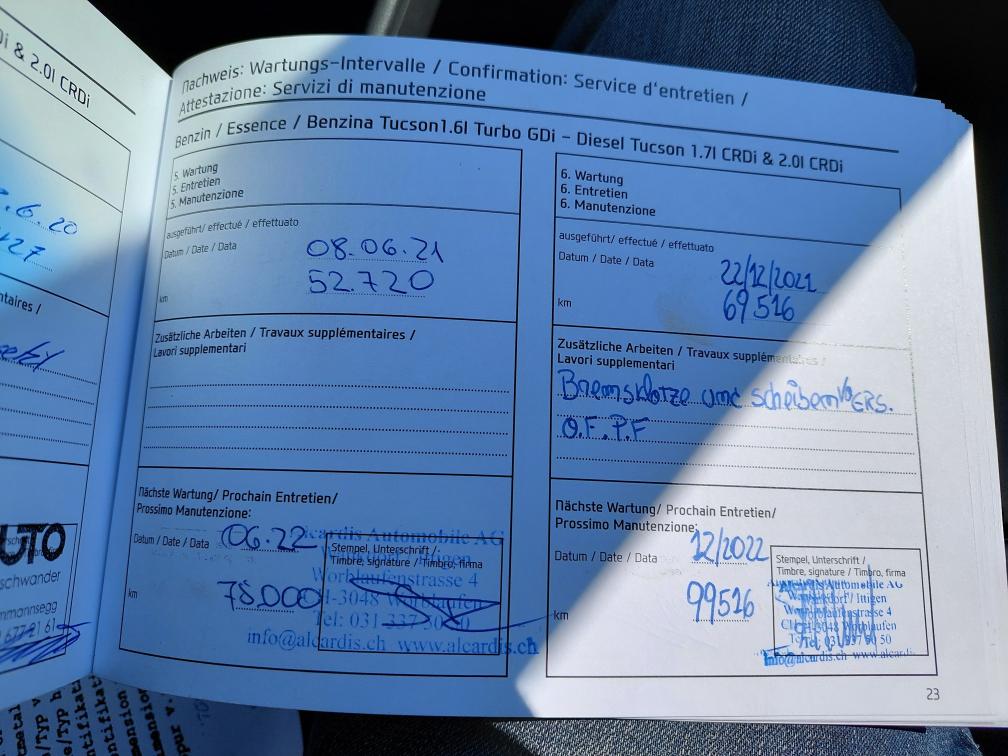 & 2.0l CRDi
6.20
ntaires /
UTO
schwander
mmannsegg
Nachweis: Wartungs-Intervalle / Confirmation: Service d'entretien /
Attestazione: Servizi di manutenzione
Benzin / Essence / Benzina Tucson1.6l Turbo GDi – Diesel Tucson 1.7l CRDi & 2.0l CRDi
5. Wartung
5. Entretien
5. Manutenzione
ausgeführt/ effectué / effettuato
Datum / Date / Data 08.06.21
km 52.720
Zusätzliche Arbeiten / Travaux supplémentaires /
Lavori supplementari
Nächste Wartung/ Prochain Entretien/
Prossimo Manutenzione:
Datum / Date / Data 06.22
km 78.000
Stempel, Unterschrift /
Timbre, signature / Timbro, firma
Alcardis Automobile AG
Worblaufenstrasse 4
CH-3048 Worblaufen
Tel: 031 337 50 50
info@alcardis.ch www.alcardis.ch
6. Wartung
6. Entretien
6. Manutenzione
ausgeführt/ effectué / effettuato
Datum / Date / Data 22/12/2021
km 69516
Zusätzliche Arbeiten / Travaux supplémentaires /
Lavori supplementari
Bremsklotze und scheiben VA ERS.
O.F. P.F
Nächste Wartung/ Prochain Entretien/
Prossimo Manutenzione:
Datum / Date / Data 12/2022
km 99516
Stempel, Unterschrift /
Timbre, signature / Timbro, firma
Alcardis Automobile AG
Ittigen
4
Worblaufen
Tel. 031 337 50 50
info@alcardis.ch
23